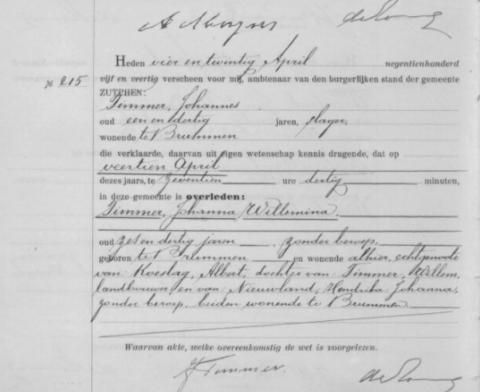 Heden vier en twintig April negentienhonderd
№ 215 vijf en veertig verscheen voor mij, ambtenaar van den burgerlijken stand der gemeente
ZUTPHEN:
Timmer, Johannes
oud een en dertig jaren, slager,
wonende te Brummen
die verklaarde, daarvan uit eigen wetenschap kennis dragende, dat op
veertien April
dezes jaars, te zeventien ure dertig minuten,
in deze gemeente is overleden:
Timmer, Johanna Willemina
oud zes en dertig jaren zonder beroep,
geboren te Brummen en wonende alhier, echtgenoote
van Koeslag, Albert, dochter van Timmer, Willem,
landbouwer, en van Nieuwland, Hendrika Johanna,
zonder beroep, beiden wonende te Brummen
Waarvan akte, welke overeenkomstig de wet is voorgelezen.
J Timmer